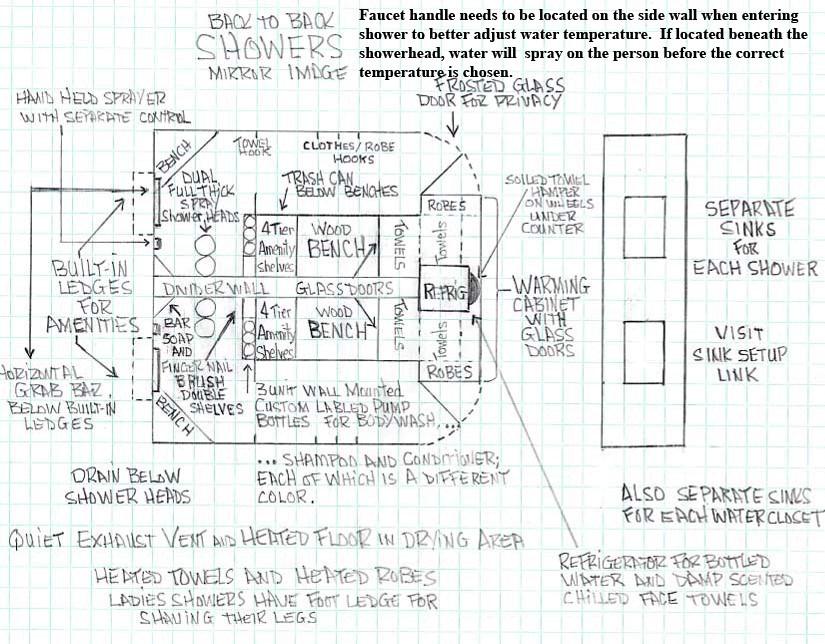 BACK TO BACK
SHOWERS
MIRROR IMAGE
Faucet handle needs to be located on the side wall when entering
shower to better adjust water temperature. If located beneath the
showerhead, water will spray on the person before the correct
temperature is chosen.
FROSTED GLASS
DOOR FOR PRIVACY
HAND HELD SPRAYER
WITH SEPARATE CONTROL
BENCH
TOWEL
HOOK
CLOTHES/ROBE
HOOKS
DUAL
FULL THICK
SPRAY
Shower HEADS
TRASH CAN
BELOW BENCHES
SOILED TOWEL
HAMPER
ON WHEELS
UNDER
COUNTER
ROBES
Towels
4 Tier
Amenity
Shelves
WOOD
BENCH
TOWELS
SEPARATE
SINKS
FOR
EACH SHOWER
BUILT-IN
LEDGES
FOR
AMENITIES
DIVIDER WALL
GLASS DOORS
REFRIG
WARMING
CABINET
WITH
GLASS
DOORS
BAR
SOAP
AND
FINGER NAIL
BRUSH
DOUBLE
SHELVES
4 Tier
Amenity
Shelves
WOOD
BENCH
TOWELS
Towels
ROBES
VISIT
SINK SETUP
LINK
HORIZONTAL
GRAB BAR
BELOW BUILT-IN
LEDGES
BENCH
3 UNIT WALL Mounted
CUSTOM LABLED PUMP
BOTTLES FOR BODYWASH,...
... SHAMPOO AND CONDITIONER;
EACH OF WHICH IS A DIFFERENT
COLOR.
DRAIN BELOW
SHOWER HEADS
ALSO SEPARATE SINKS
FOR EACH WATER CLOSET
QUIET EXHAUST VENT AND HEATED FLOOR IN DRYING AREA
HEATED TOWELS AND HEATED ROBES
LADIES SHOWERS HAVE FOOT LEDGE FOR
SHAVING THEIR LEGS
REFRIGERATOR FOR BOTTLED
WATER AND DAMP SCENTED
CHILLED FACE TOWELS